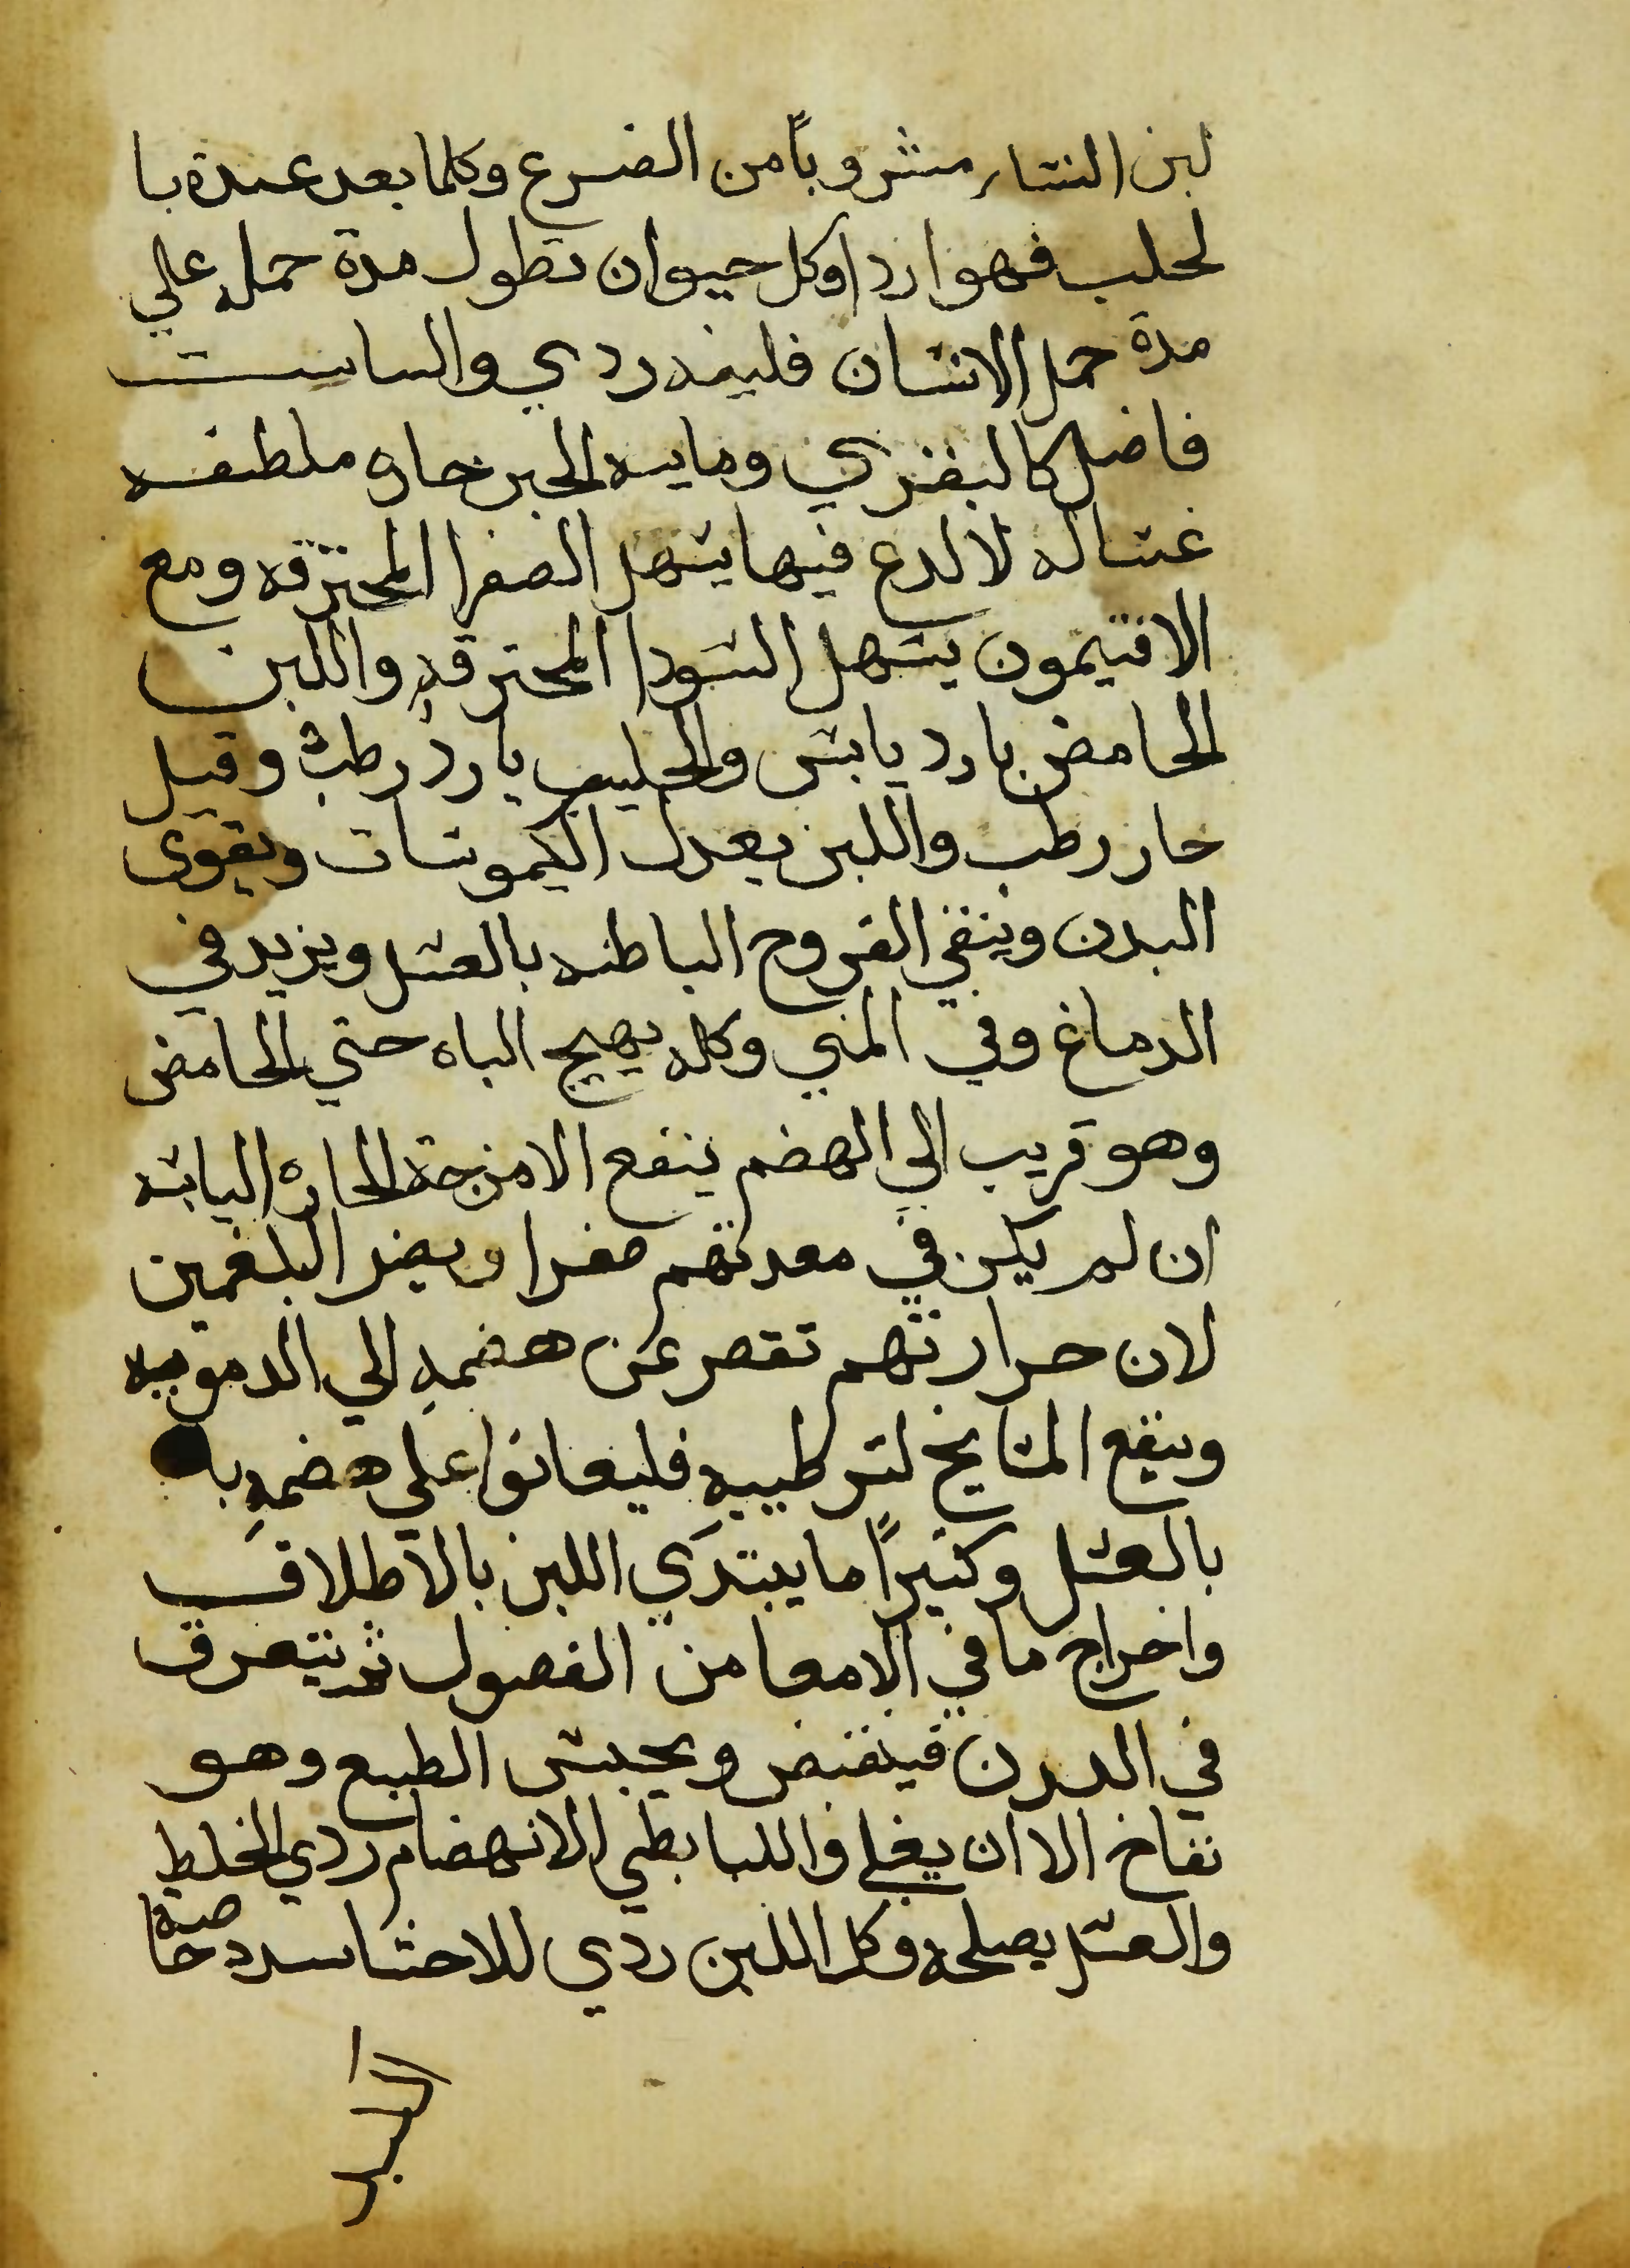 لبن النسا مشروباً من الضرع وكلما بعد عهده با
لحلب فهو اردا وكل حيوان تطول مدة حمله علي
مدة حمل الانسان فلبنه ردي والمناسب
فاضل كالبقري ومايية الجبن حاره ملطفه
غساله لا لدع فيها يسهل الصفرا المحترقه ومع
الافتيمون يسهل السودا المحترقه واللبن
الحامض بارد يابس والحليب بارد رطب وقيل
حار رطب واللبن يعدل الكيموسات ويقوى
البدن وينقي القروح الباطنه بالعسل ويزيد في
الدماغ وفي المني وكله يهيج الباه حتي الحامض
وهو قريب الي الهضم ينفع الامزجة الحاره اليابسه
ان لم يكن في معدتهم صفرا ويضر البلغمين
لان حرارتهم تقصر عن هضمه الي الدمويه
وينفع المشايخ لترطيبه فليعانوا علي هضمه با
بالعسل وكثيراً ما يبتدي اللبن بالاطلاق
واخراج ما في الامعا من الفصول ثم يتعرق
في البدن فينقبض ويحبس الطبع وهو
نفاخ الا ان يغلي واللبا بطي الانهضام ردي الخلط
والعسل يصلحه وكل اللبن ردي للاحشا سدد خاصية